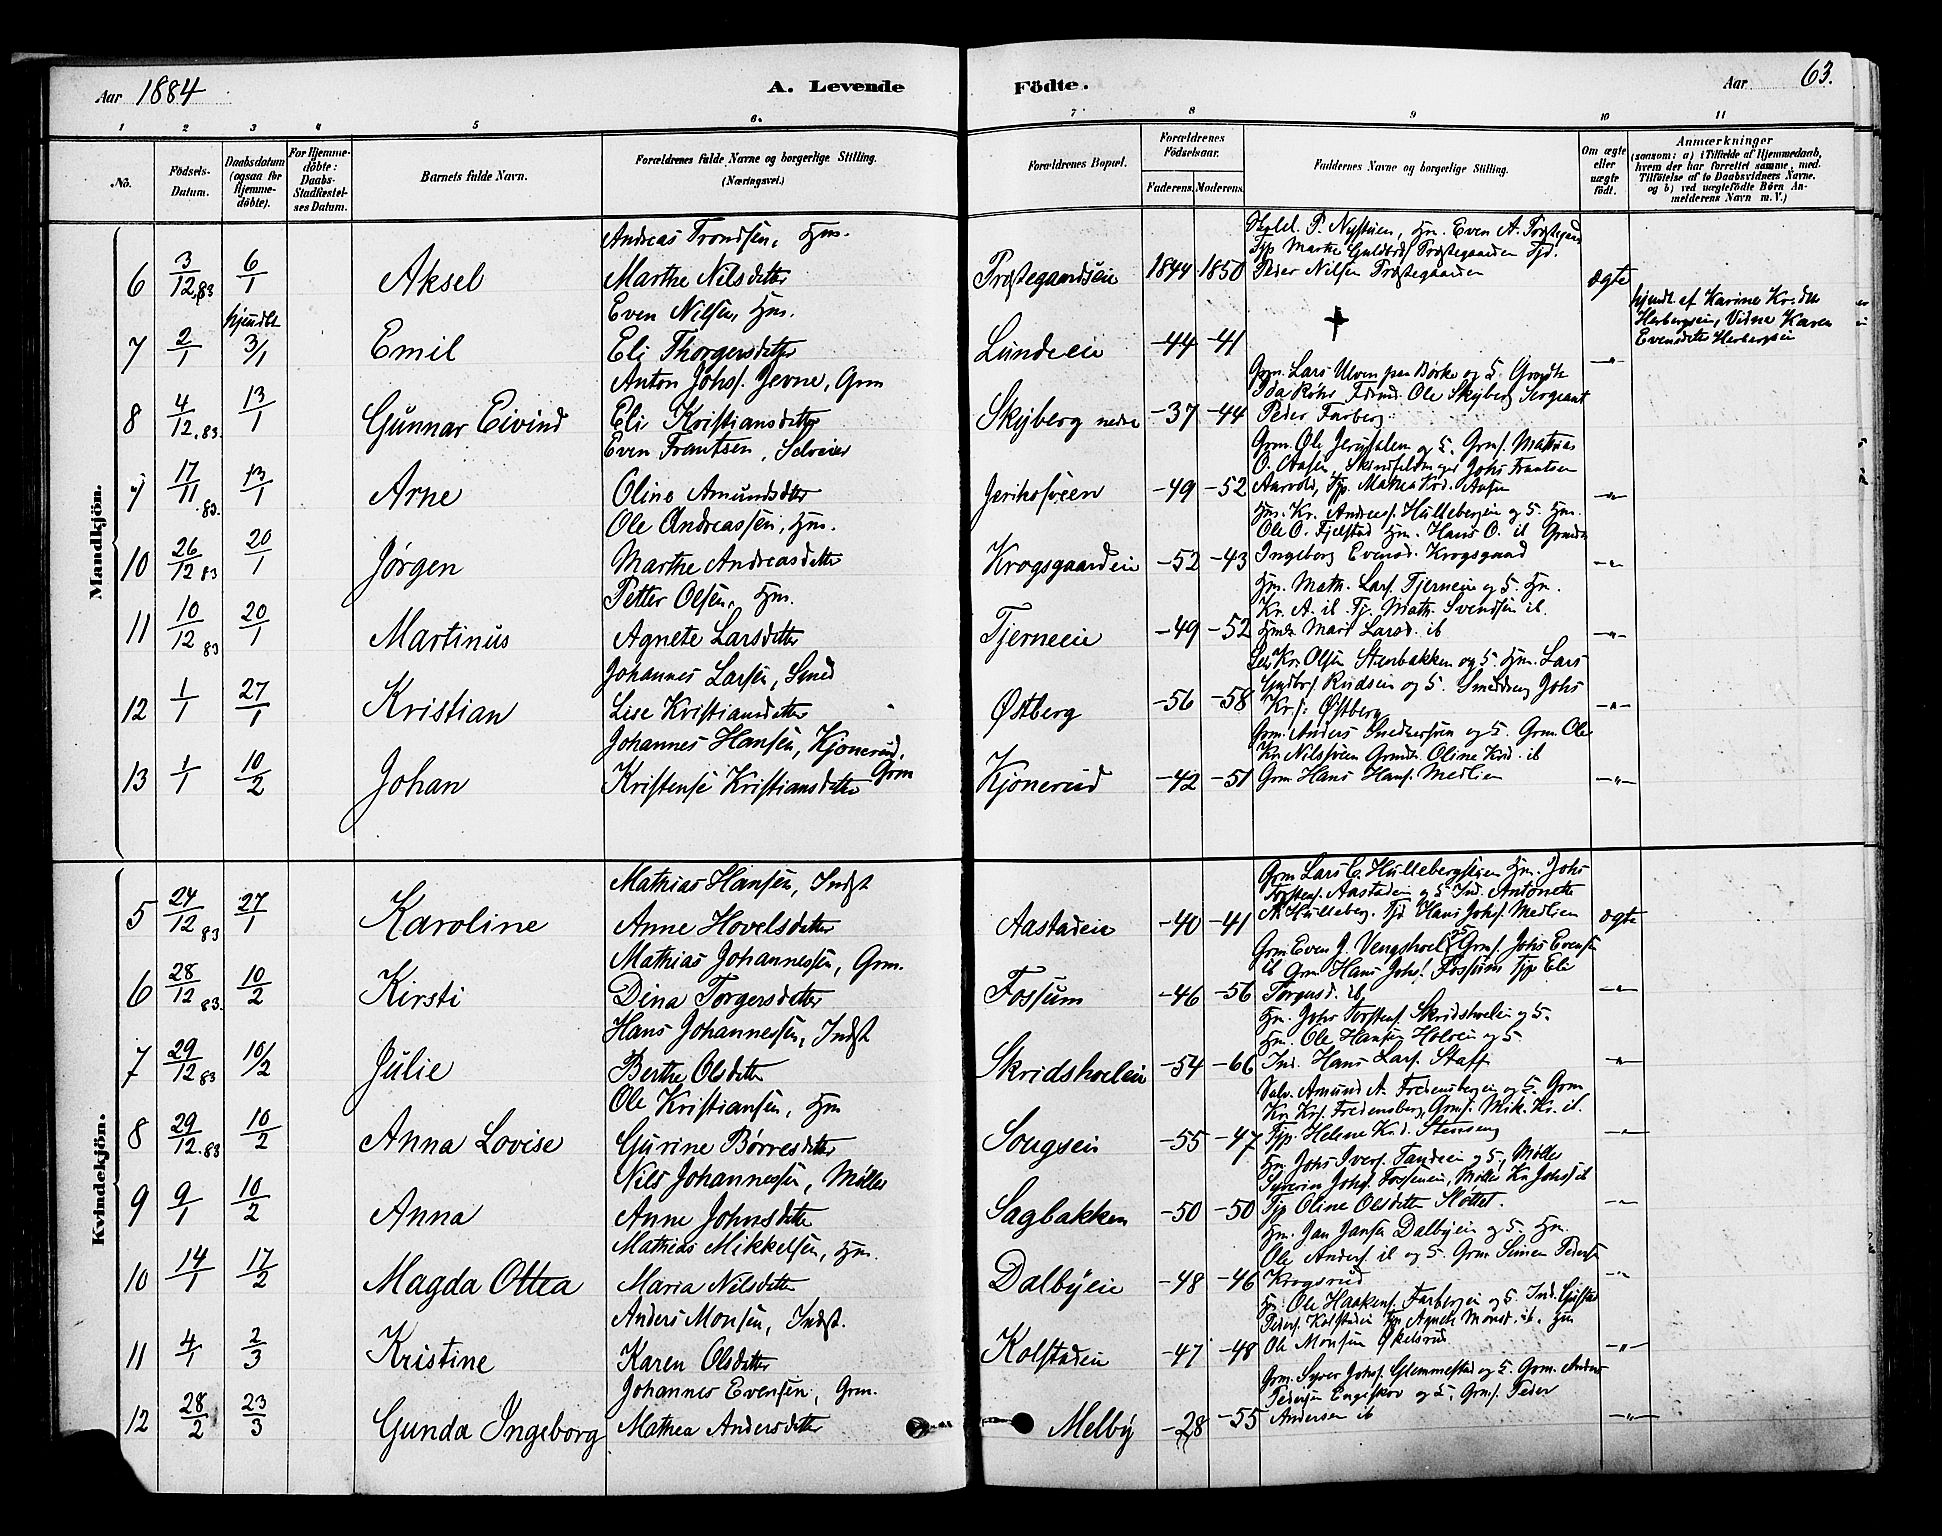 Aar 1884
A. Levende
Födte.
Aar 63.
1 2 3 4 5 6. 7 8 9 10 11
No.
Födsels-Datum.
Daabsdatum (ogsaa för Hjemme-döbte).
For Hjemme-döbte: Daabs-Stadfæstel-ses Datum.
Barnets fulde Navn.
Forældrenes fulde Navne og borgerlige Stilling. (Næringsvei.)
Forældrenes Bopæl.
Forældrenes Födselsaar.
Faderens. Moderens.
Faddernes Navne og borgerlige Stilling.
Om ægte eller uægte födt.
Anmærkninger
(saasom: a) i Tilfælde af Hjemmedaab, hvem der har forrettet samme, med Tilföielse af to Daabsvidners Navne. og b) ved uægtefödte Börn An-melderens Navn m. V.)
Mandkjön.
Andreas Trondsen, Hm.
6 3/12.83 6/1 Aksel Marthe Nilsdatter Præstegaardseie 1844 1850 Peder Nilsen Præstegaarden ægte
Even Nilsen, Hm.
7 2/1 hjemdbt 3/1 Emil Eli Thorgersdatter Lundeeie -44 -41 + -"-
hjmdt af Karine Kr.dtr
Herbergseie, Vidne Karen
Evensdatter Herbergseie
Anton Johs. Jevne, Grm
Grm. Lars Ulven paa Børke og H. Grmdt
8 4/12.83 13/1 Gunnar Eivind Eli Kristiansdatter Skyberg nedre -37 -44 Peder Farberg
Even Frantsen, Selveier
Grm. Ole Jerusalem og H. Grms. Mathias
9 17/11.83. 13/1 Arne Oline Amundsdtr Jerikosveen -49 -52 -"-
Ole Andreassen, Hm.
Hm. Kr. Andreas. Hullebergeie og H. Hm.
Ole O. Fjelstad Hm. Hans O. ib
10 26/12 83 20/1 Jørgen Marthe Andreasdatter Krogsgaardeie -52 -43 Ingeborg Evensd. Krogsgaard -"-
Petter Olsen, Hm.
Hm. Math. Lars. Tjerneie og H. Hm.
Kr. A. ib Tj. Math. Svendsen ib.
11 10/12 83 20/1 Martinus Agnete Larsdatter Tjerneeie -49 -52 Mari Larsd. ib -"-
Johannes Larsen, Smed
Kr. Olsen Stenbakken og H. Hm. Lars
Gudbr. Rudseie og H. Smeddreng Johs
12 1/1 27/1 Kristian Lise Kristiansdatter Østberg -56 -58 Kr. Østberg -"-
Johannes Hansen, Kjonerud, Grm
Grm. Anders Snedkersveen og H. Grm. Ole
Kr. Nilsveen Grmdt. Oline Krd. ib
13 1/1 10/2 Johan Kristense Kristiansdatter Kjonerud -42 -51 Grm Hans Hans. Medlien -"-
Kvindekjön.
Mathias Hansen, Indst
Grm Lars C. Hullebergstuen Hm. Johs
Torstens. Aastadeie og H Ind. Antonette
5 24/12 83 27/1 Karoline Anne Hovelsdatter Aastadeie -40 -41 A Hulleberg. Tjd Hans Johs. Medlien ægte
Mathias Johannessen, Grm.
Grm Even J. Vengshoel og H Grms. Johs Evensen
ib Grm Hans Johs. Fossum Tjp Eli
6 28/12 83. 10/2 Kirsti Dina Torgersdatter Fossum -46 -56 Torgersd. ib -"-
Hans Johannessen, Indst
Hm. Johs Torstens. Skridshoeleie og H.
Hm. Ole Hansen Holeie og H
7 29/12 83 10/2 Julie Berthe Olsdatter Skridshoeleie -54 -66 Ind. Hans Lars. Staff -"-
Ole Kristiansen, Hm
Selv. Amund A. Fredensbergeie og H. Grm
Kr. Krs. Fredensberg, Grms. Mik. Kr. ib.
8 29/12.83 10/2 Anna Lovise Gurine Børresdatter Sougseie -55 -47 Tjp. Helene Krd. Stenseng -"-
Nils Johannessen, Møller
Hm. Johs Ivers. Tandeeie og H, Møller
Syverin Johs. Fosseneie, Møller Kr Johs. ib
9 9/1 10/2 Anna Anne Johnsdatter Sagbakken -50 -50 Tjp Oline Olsdatter Slottet. -"-
Mathias Mikkelsen, Hm.
Hm. Jan Jansen Dalbyeie og H. Hm.
Ole Anders. ib og H. Grm Simen Pedersen
10 14/1 17/2 Magda Ottea Maria Nilsdatter Dalbyeie -48 -46 Krogsrud -"-
Anders Monsen, Indst.
Hm. Ole Haakens. Farbergeie og H. Ind. Gustav
Peders. Kolstadeie Tjp Agnete Monsd. ib. Hm
11 4/1 2/3 Kristine Karen Olsdatter Kolstadeie -47 -48 Ole Monsen Økelsrud -"-
Johannes Evensen, Grm.
Grm. Syver Johs. Glemmestad og H. Grm. Anders
Pedersen Engeskov og H. Grms. Peder
12 28/2 23/3 Gunda Ingeborg Mathea Andersdatter Melby -28 -55 Andersen ib -"-